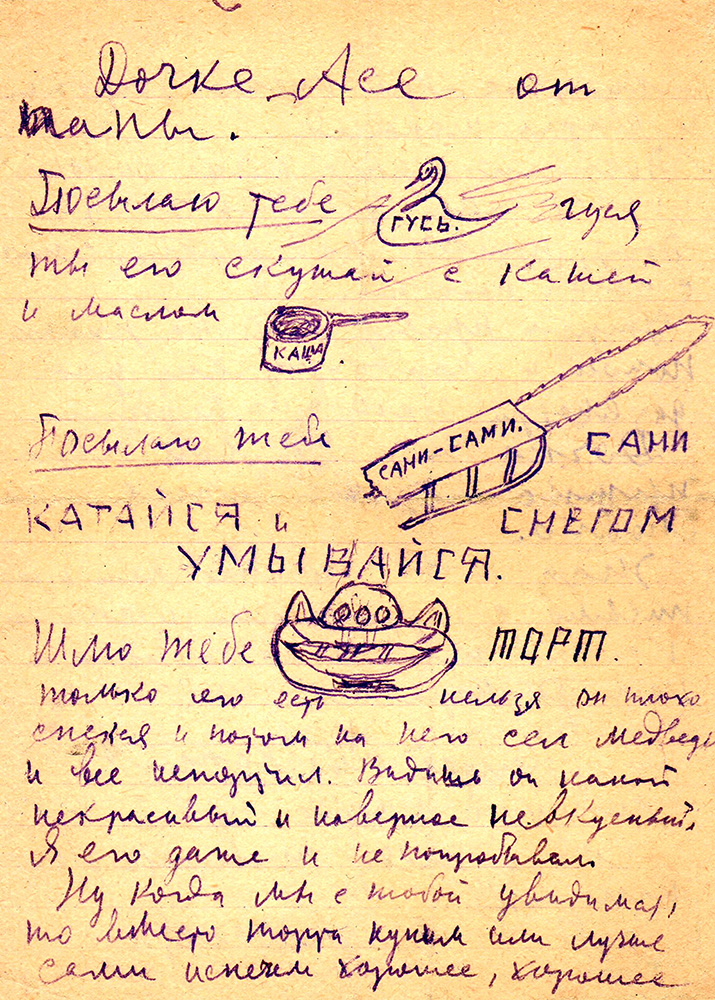 Дочке Асе от
папы.
Посылаю тебе ГУСЬ. гуся
ты его скушай с кашей
и маслом
КАША
Посылаю тебе САНИ-САМИ. САНИ
КАТАЙСЯ и СНЕГОМ
УМЫВАЙСЯ.
Шлю тебе ТОРТ.
только его есть нельзя он плохо
спекся и потом на него сел медведь
и все испортил. Видишь он какой
некрасивый и наверное невкусный,
Я его даже и не попробывал.
Ну когда мы с тобой увидимся,
то вместо торта купим или лучше
сами испечем хорошее, хорошее